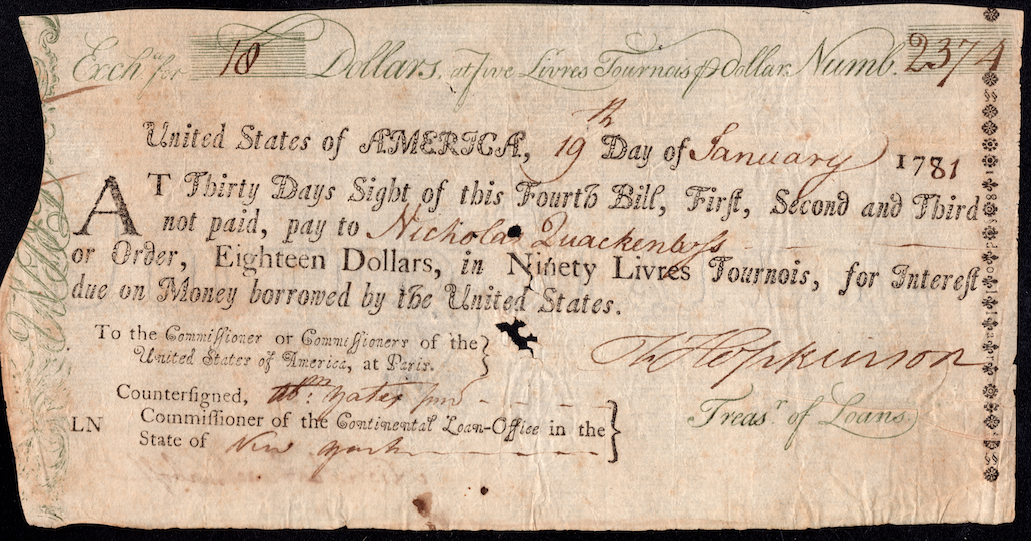 Exchᵃ for 18 Dollars, at five Livres Tournois ⅌ dollar. Numb. 2374
United States of AMERICA, 19th Day of January 1781
AT Thirty Days Sight of this Fourth Bill, Firſt, Second and Third
not paid, pay to Nicholas Quackenboſs
or Order, Eighteen Dollars, in Ninety Livres Tournois, for Intereſt
due on Money borrowed by the United States.
To the Commiſſioner or Commiſſioners of the
United States of America, at Paris.
Th Hopkinson
Treasʳ of Loans.
Countersigned, Abm. Yates Junr
LN Commiſſioner of the Continental Loan-Office in the
State of New York